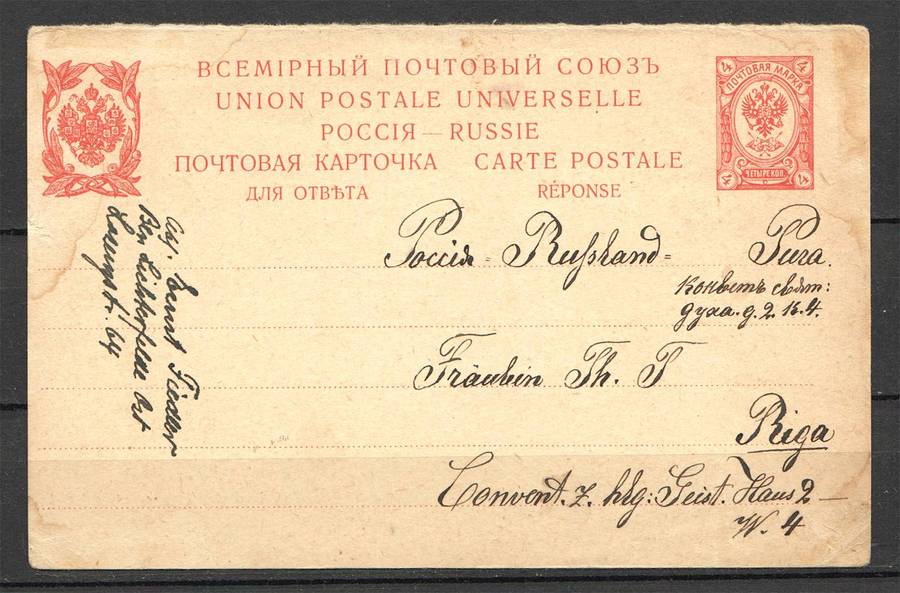 ВСЕМІРНЫЙ ПОЧТОВЫЙ СОЮЗЪ
UNION POSTALE UNIVERSELLE
РОССІЯ — RUSSIE
ПОЧТОВАЯ КАРТОЧКА CARTE POSTALE
ДЛЯ ОТВѢТА RÉPONSE
4 4
ПОЧТОВАЯ МАРКА
4 ЧЕТЫРЕ КОП. 4
Россія = Russland = Рига.
Конвентъ свят:
духа. д. 2. К. 4.
Fräulein Th. T
Riga
Convent. z. hlg: Geist. Haus 2 —
W. 4
Abs. Ernst Fiedler
Bln Lichterfelde Ost
64